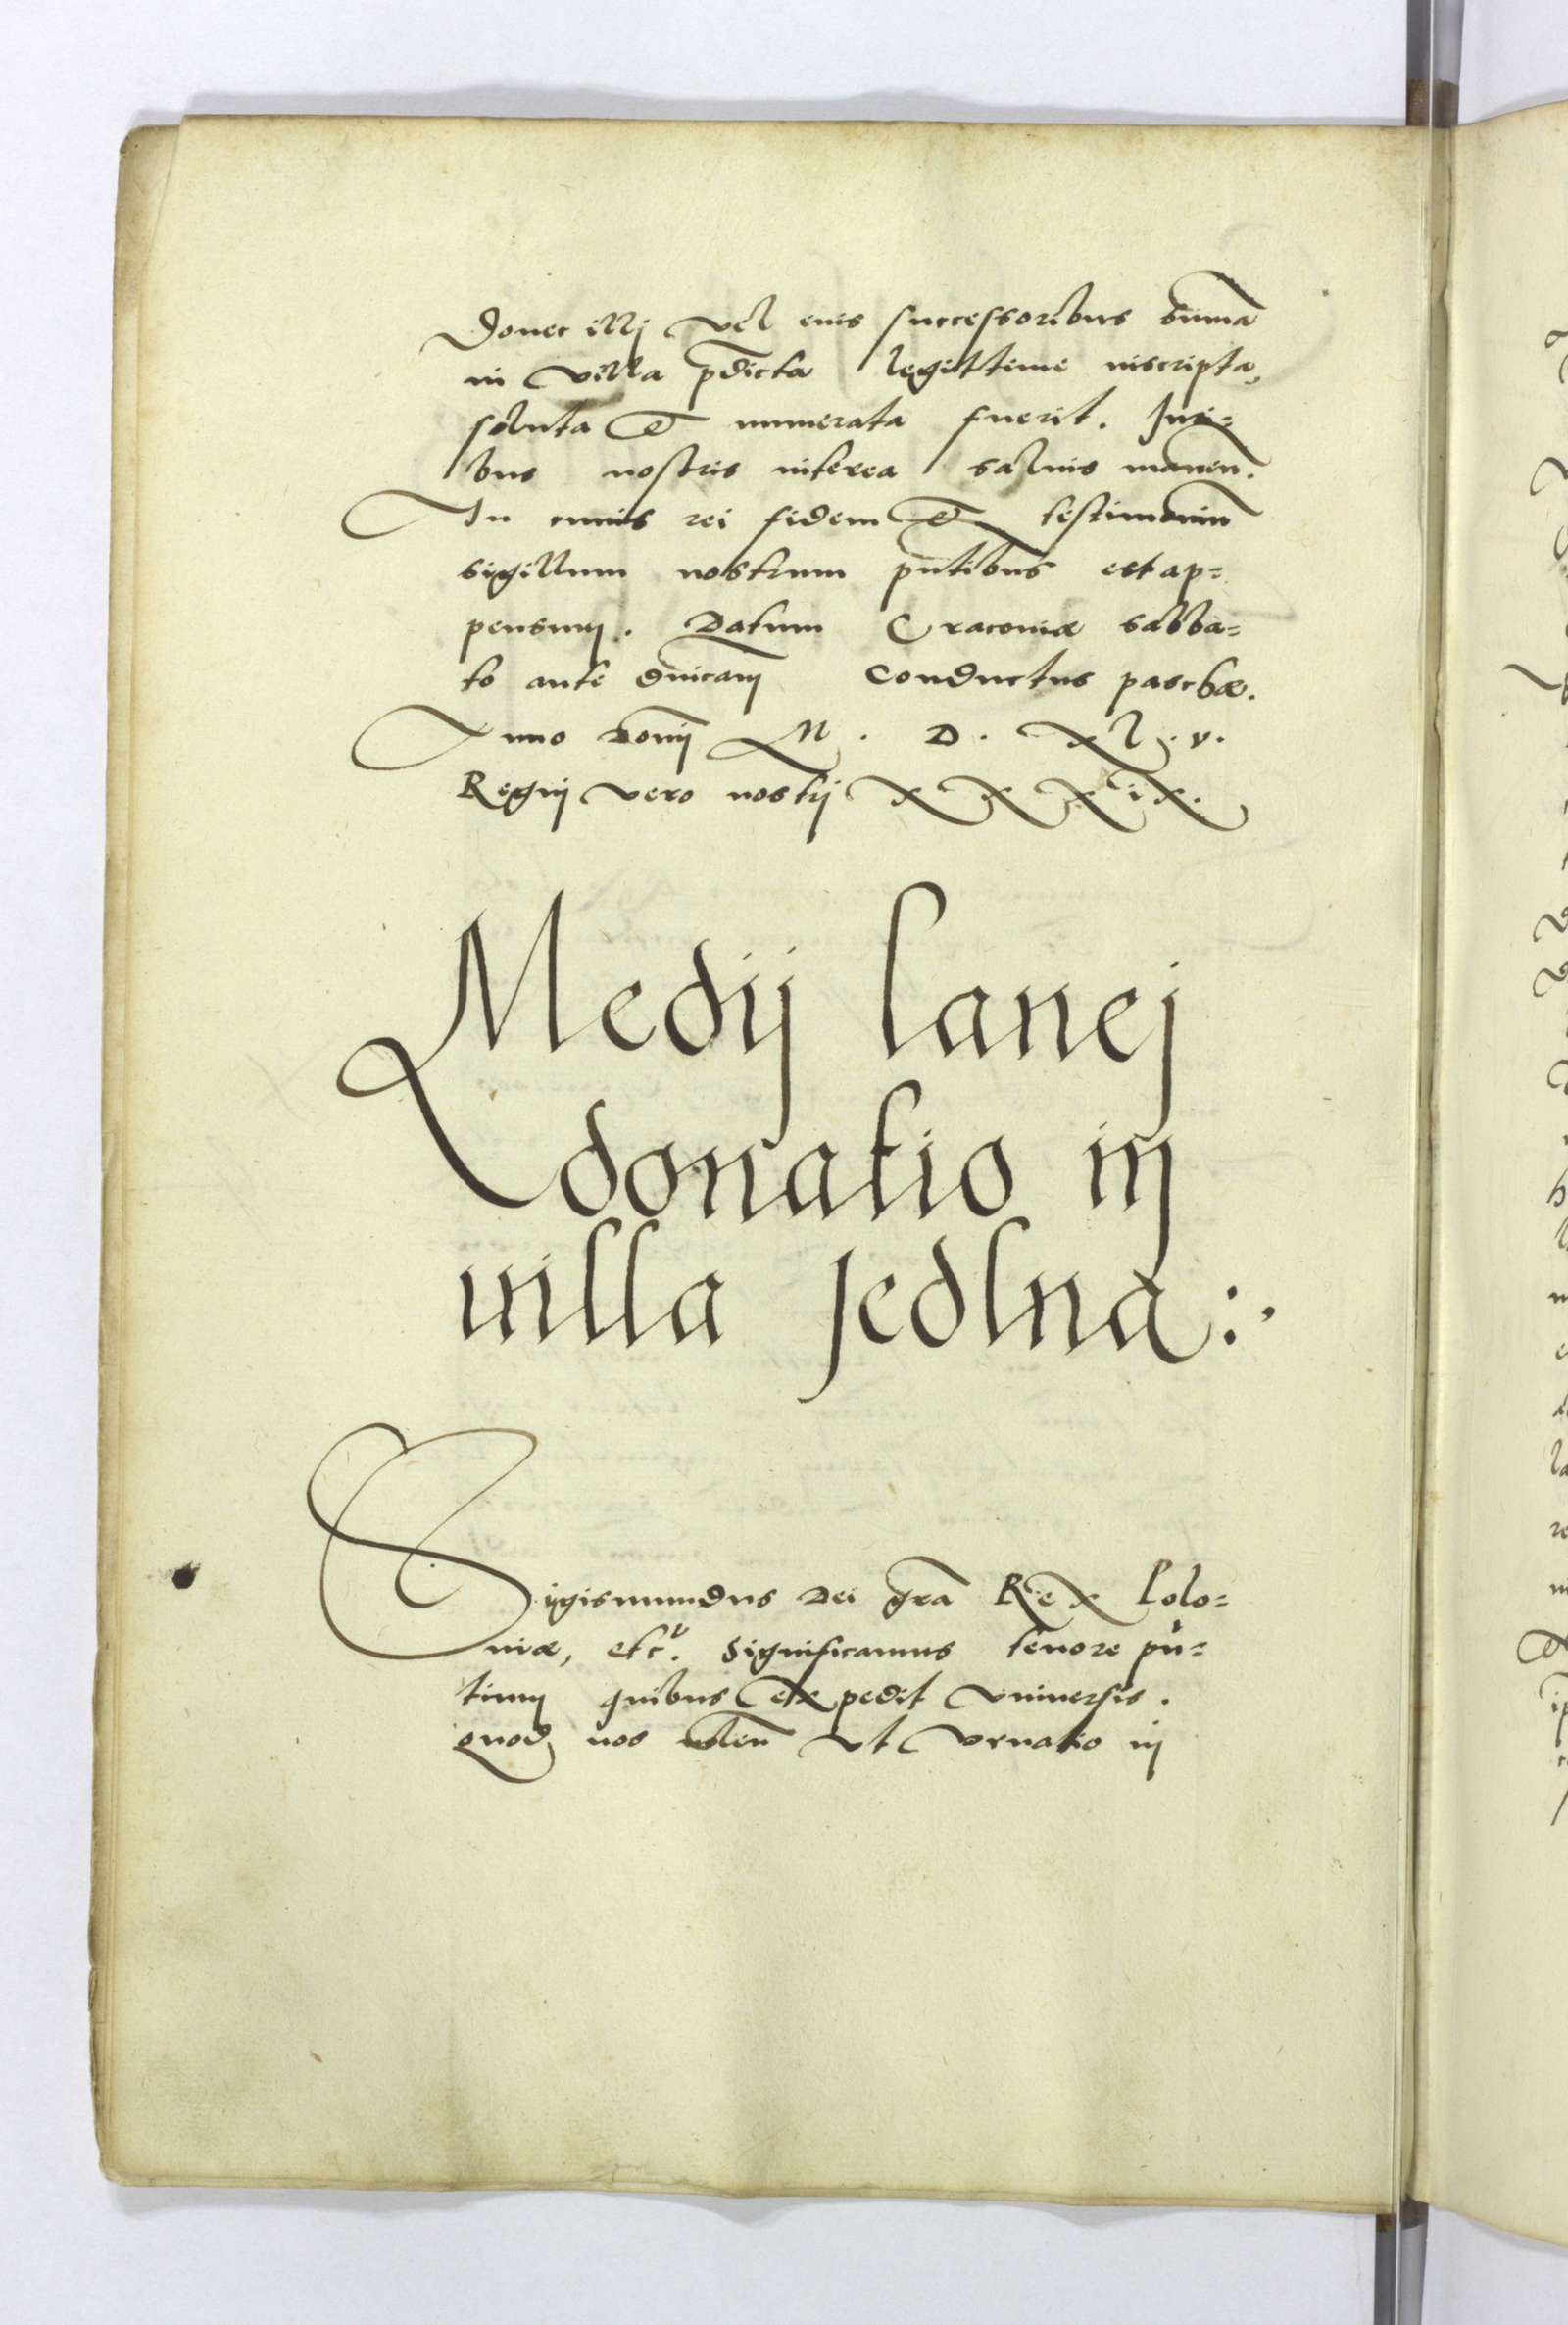 Donec illj vel eius successoribus sum̄a
in villa p̄dicta legittime inscripta,
soluta & numerata fuerit. Juri=
bus nostris interea saluis manen̄.
In cuius rei fidem & testimoniū
sigillum nostrum pn̄tibus est ap=
pensum. Datum Cracoviæ sabba=
to ante dn̄icam conductus paschæ.
Anno Domj M. D. xl. v.
Regnj vero nostrj xxxix.
Medij lanej
donatio in
uilla Jedlna:.
Sigismundus Dei gr̄a Rex Polo=
niæ, etc. Significamus tenore pn̄=
tium quibus expedit vniuersis.
quod nos volen̄ vt vrnatio in